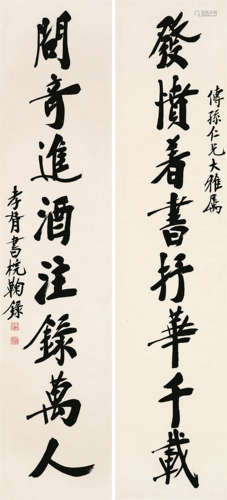 發憤着書抒華千載
傅孫仁兄大雅属
問奇進酒注錄萬人
孝胥書梡鞠錄